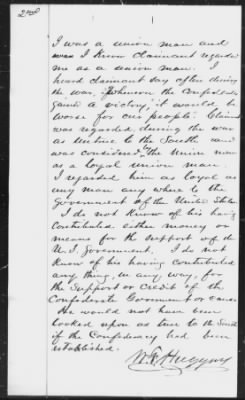 2nd
I was a union man and
was I know claimant regarded
me as a union man. I
heard claimant say often during
the war, whenever the Confederates
gained a victory, it would be
worse for our people. Claimt
was regarded during the war
as untrue to the South and
was considered the Union men
as a loyal union man
I regarded him as loyal as
any man any where to the
Government of the United States
I do not know of his having
contributed either money or
means for the support of the
U.S. Government. I do not
know of his having contributed
any thing, in any way, for
the support or credit of the
Confederate Government or cause
He would not have been
looked upon as true to the South
if the Confederacy had been
established.
Huggins